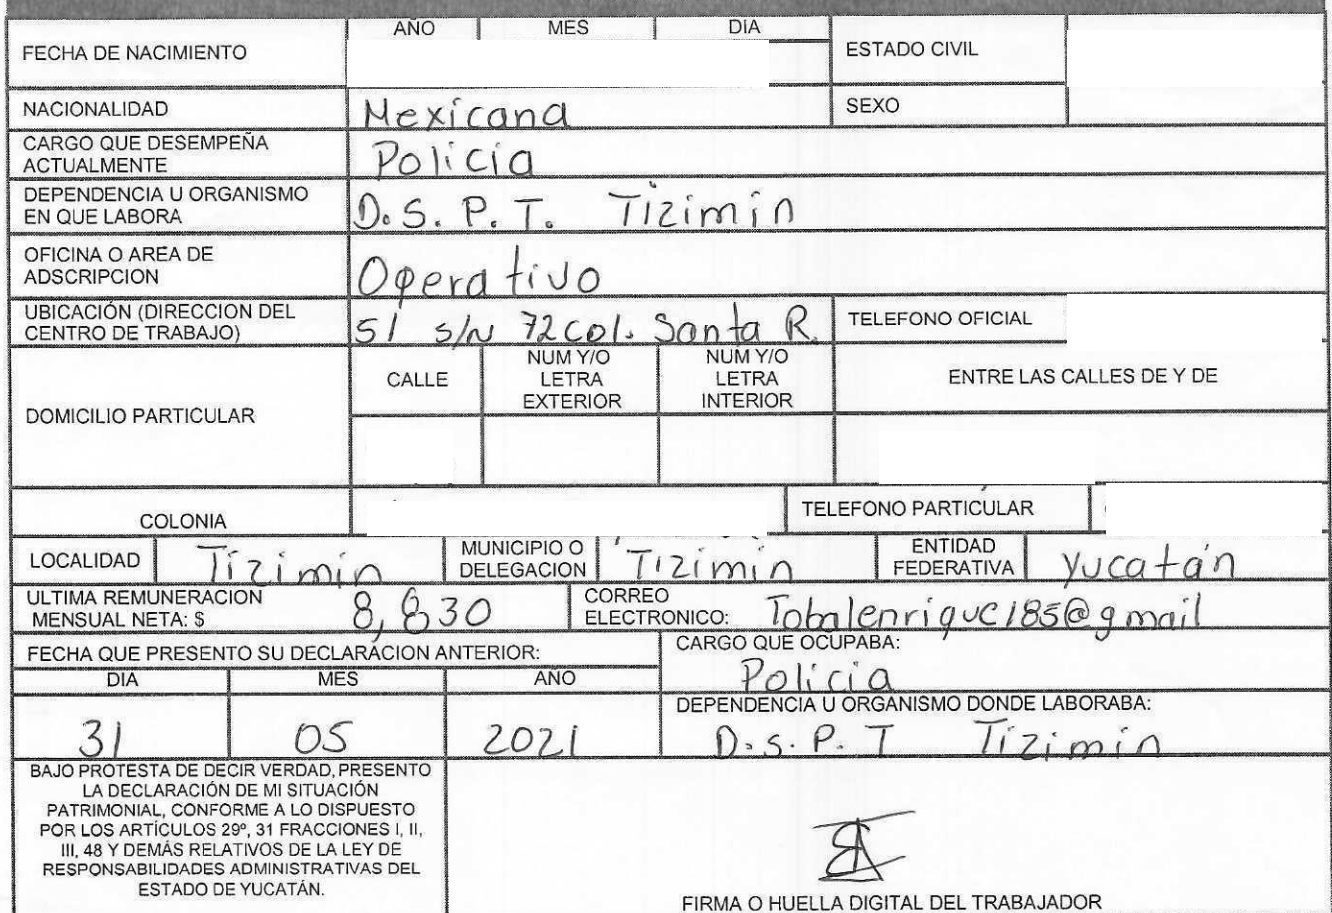 AÑO MES DIA
FECHA DE NACIMIENTO ESTADO CIVIL
NACIONALIDAD Mexicana SEXO
CARGO QUE DESEMPEÑA
ACTUALMENTE Policia
DEPENDENCIA U ORGANISMO
EN QUE LABORA D.S.P.T. Tizimín
OFICINA O AREA DE
ADSCRIPCION Operativo
UBICACIÓN (DIRECCION DEL
CENTRO DE TRABAJO) 51 s/n 72 col. Santa R. TELEFONO OFICIAL
DOMICILIO PARTICULAR
CALLE
NUM Y/O
LETRA
EXTERIOR
NUM Y/O
LETRA
INTERIOR
ENTRE LAS CALLES DE Y DE
COLONIA TELEFONO PARTICULAR
LOCALIDAD Tizimín
MUNICIPIO O
DELEGACION Tizimín
ENTIDAD
FEDERATIVA Yucatán
ULTIMA REMUNERACION
MENSUAL NETA: $ 8,830
CORREO
ELECTRONICO: Tobalenrique185@gmail
FECHA QUE PRESENTO SU DECLARACION ANTERIOR:
DIA MES AÑO
31 05 2021
CARGO QUE OCUPABA:
Policia
DEPENDENCIA U ORGANISMO DONDE LABORABA:
D.S.P.T Tizimín
BAJO PROTESTA DE DECIR VERDAD, PRESENTO
LA DECLARACIÓN DE MI SITUACIÓN
PATRIMONIAL, CONFORME A LO DISPUESTO
POR LOS ARTÍCULOS 29º, 31 FRACCIONES I, II,
III, 48 Y DEMÁS RELATIVOS DE LA LEY DE
RESPONSABILIDADES ADMINISTRATIVAS DEL
ESTADO DE YUCATÁN.
FIRMA O HUELLA DIGITAL DEL TRABAJADOR